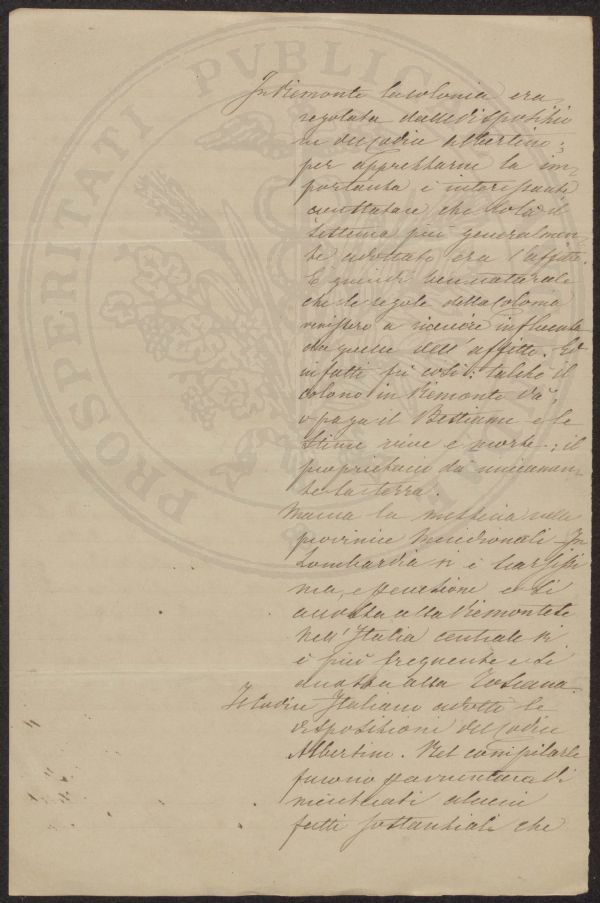 In Piemonte la colonia era
regolata dalle disposizio
ni del Codice Albertino;
per apprezzarne la im-
portanza è interessante
constatare che colà il
sistema più generalmen-
te adottato era l'affitto.
E quindi ben naturale
che le regole della Colonia
venissero a ricevere influenza
da quelle dell'affitto. Ed
infatti fu così: talché il
colono in Piemonte dà,
o paga il Bestiame e le
stime vive e morte; il
proprietario dà unicamen-
te la terra.
Manca la mezzeria nelle
provincie Meridionali. In
Lombardia vi è scarsissi
ma, e si
accosta alla Piemontese
Nell'Italia centrale vi
è più frequente e si
accosta alla Toscana.
Il Codice Italiano adottò le
disposizioni del Codice
Albertino. Nel compilarle
furono
alcuni
fatti sostanziali che
PROSPERITATI PUBLICAE